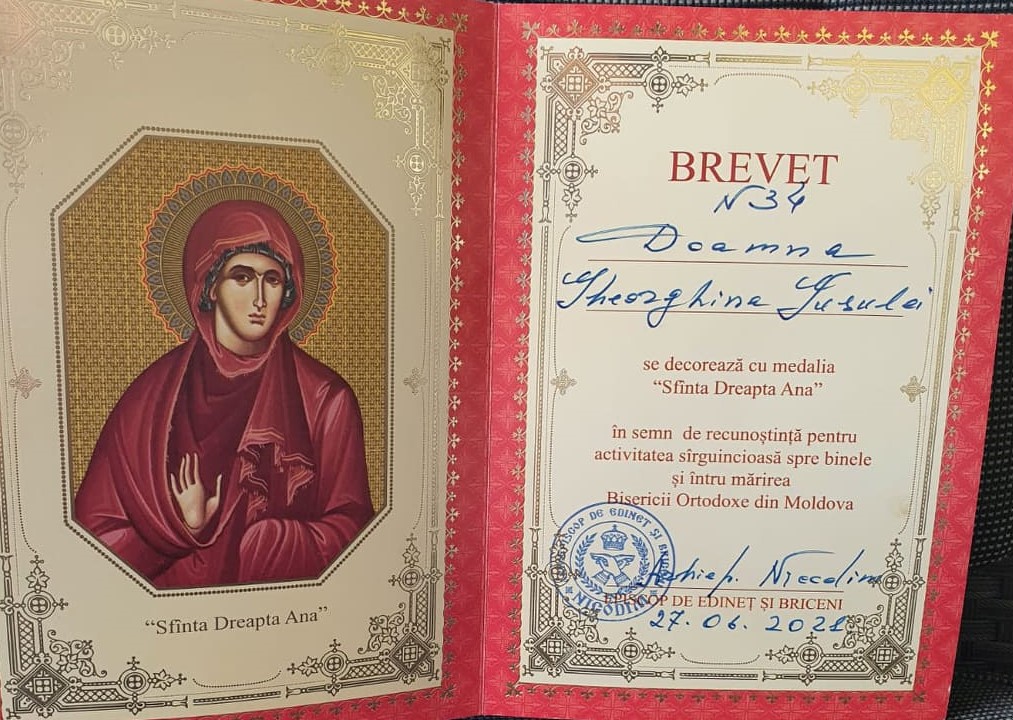 “Sfînta Dreapta Ana”
BREVET
N 34
Doamna
Gheorghina
se decorează cu medalia
“Sfînta Dreapta Ana”
în semn de recunoștință pentru
activitatea sîrguincioasă spre binele
și întru mărirea
Bisericii Ortodoxe din Moldova
EPISCOP DE EDINEȚ ȘI
NICODIM
Arhiep. Nicodim
EPISCOP DE EDINEȚ ȘI BRICENI
27.06.2021